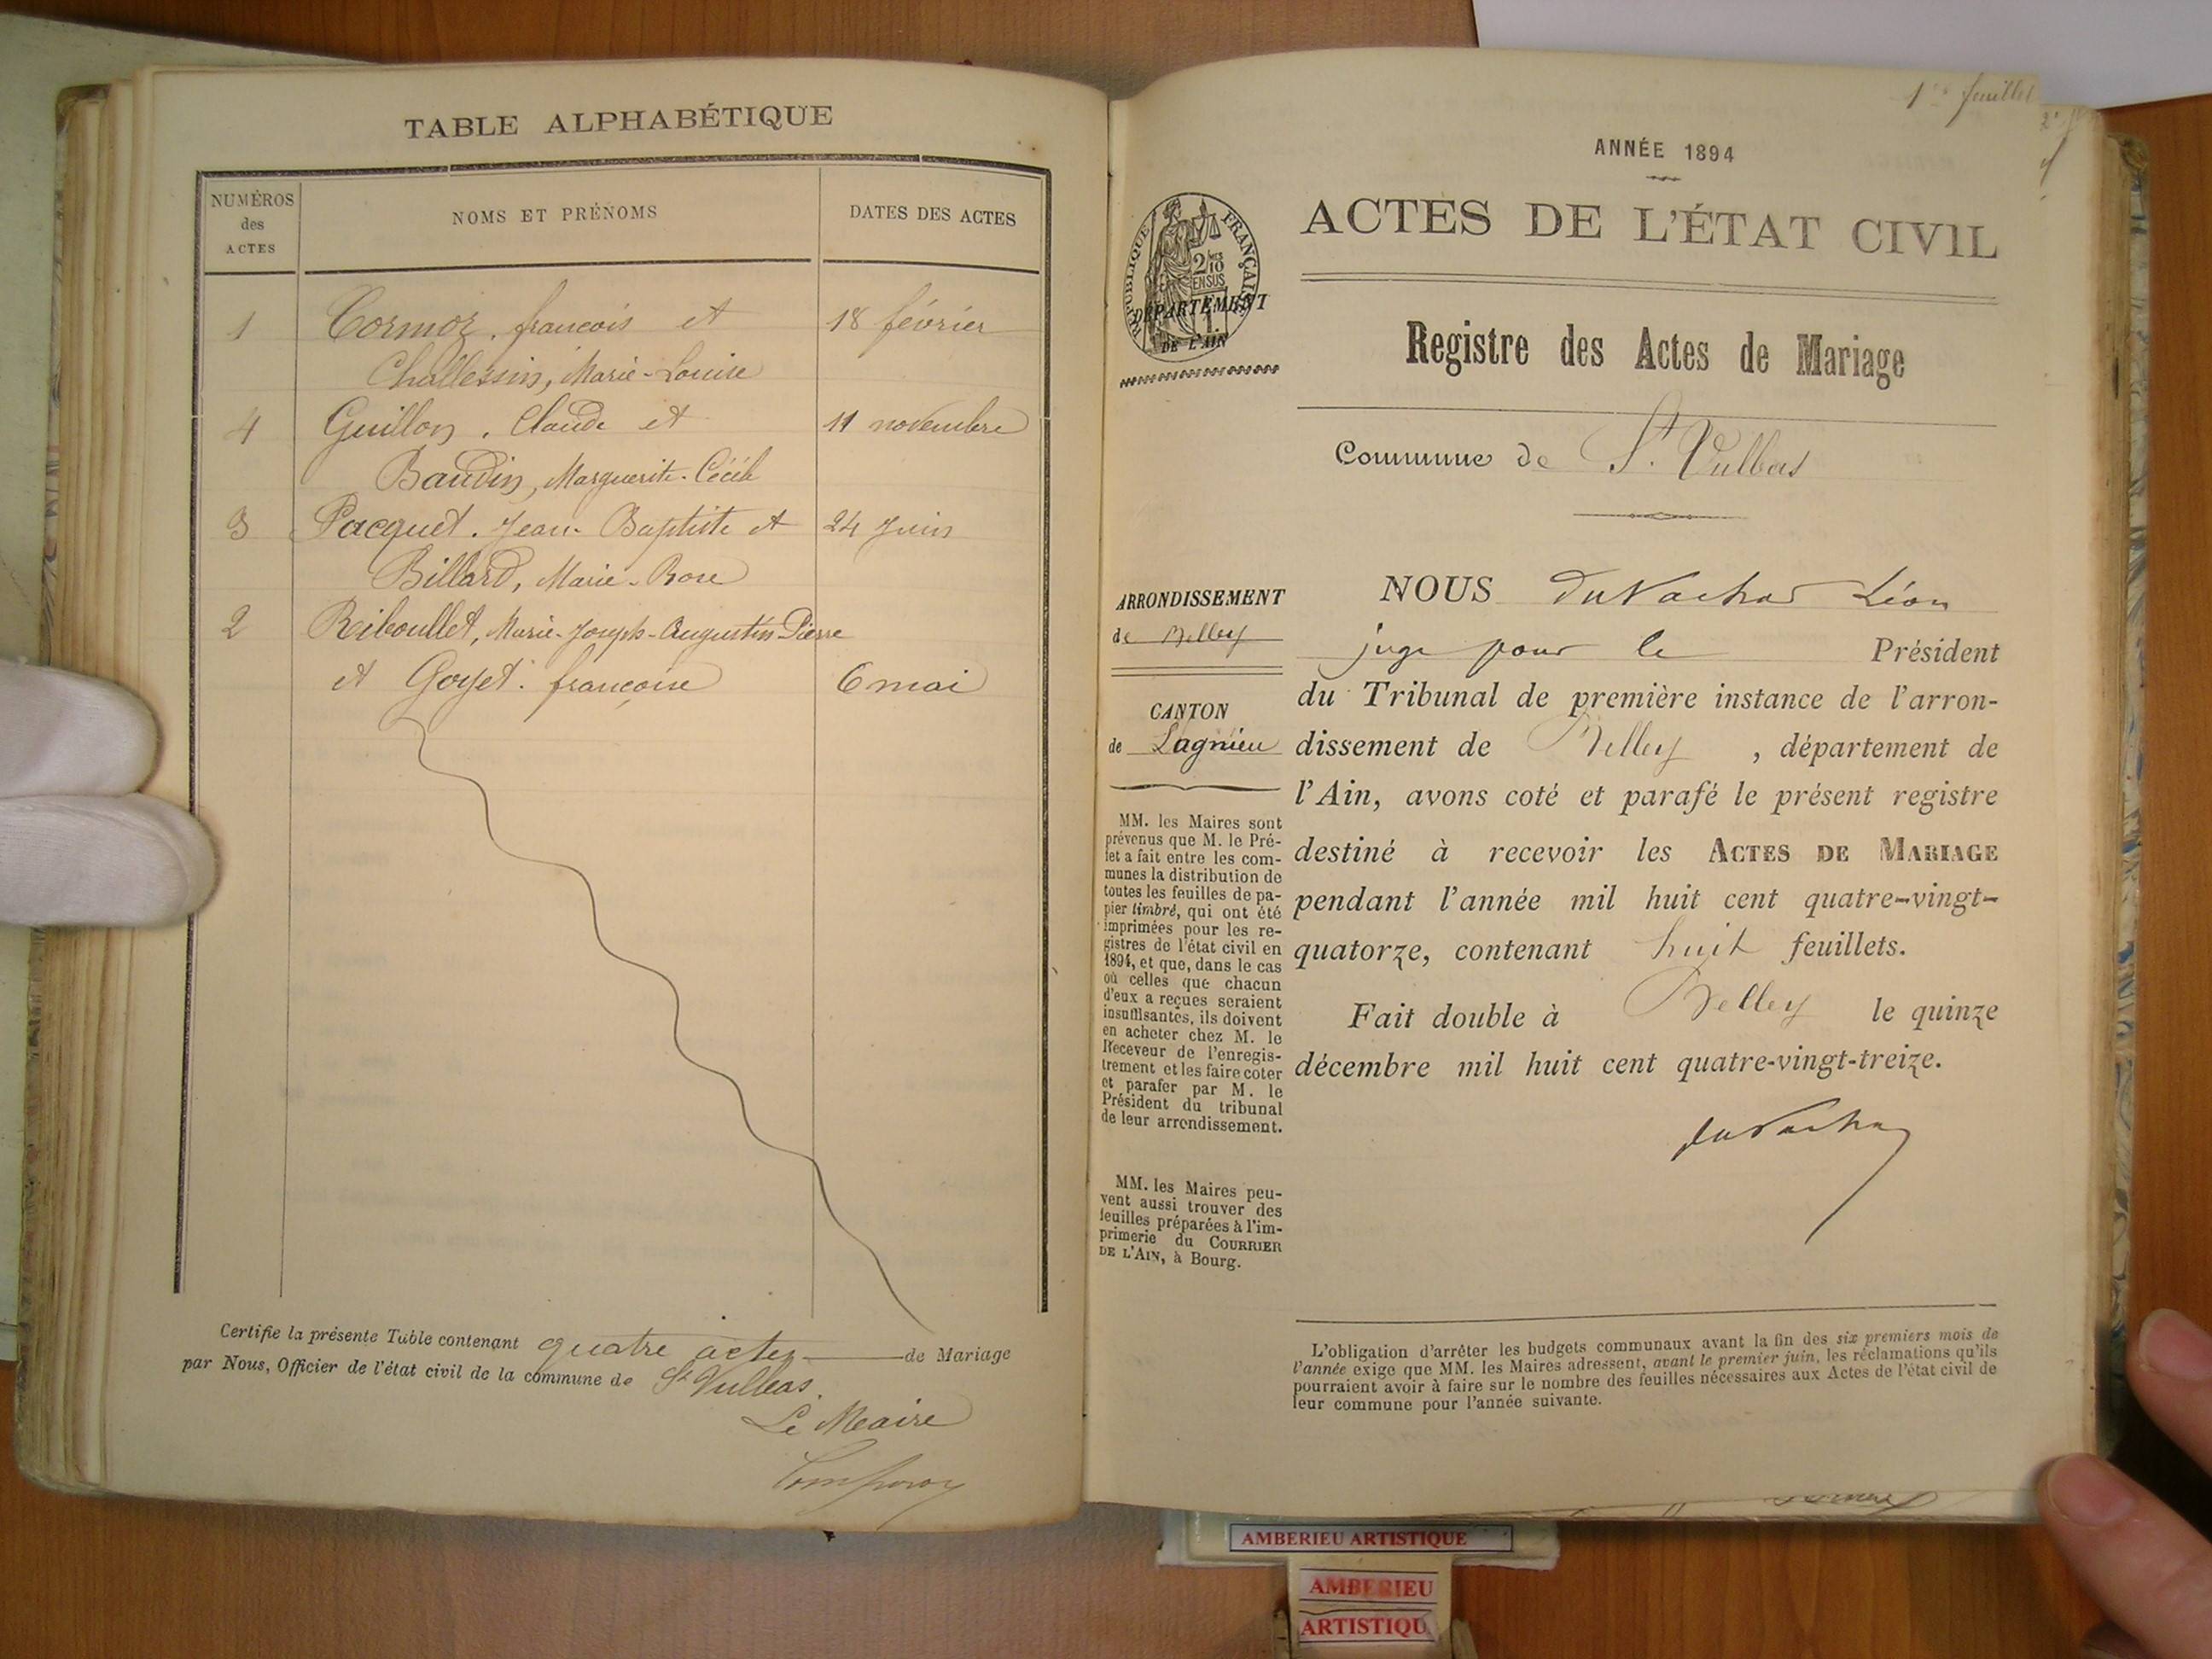 TABLE ALPHABÉTIQUE
NUMÉROS
des
ACTES
NOMS ET PRÉNOMS
DATES DES ACTES
1 Cormoz, françois et 18 février
Challessin, Marie-Louise
4 Guillon, Claude et 11 novembre
Baudin, Marguerite-Cécile
3 Pacquet, Jean-Baptiste et 24 Juin
Billard, Marie-Rose
2 Riboullet, Marie-Joseph-Augustin-Pierre
et Goyet françoise 6 mai
Certifie la présente Table contenant quatre actes de Mariage
par Nous, Officier de l'état civil de la commune de St Vulbas.
Le Maire
1er feuillet
ANNÉE 1894
RÉPUBLIQUE FRANÇAISE
2/10
EN SUS
DÉPARTEMENT
DE L'AIN
ACTES DE L'ÉTAT CIVIL
Registre des Actes de Mariage
Commune de St. Vulbas
ARRONDISSEMENT
de Belley
CANTON
de Lagnieu
MM. les Maires sont
prévenus que M. le Pré-
fet a fait entre les com-
munes la distribution de
toutes les feuilles de pa-
pier timbré, qui ont été
imprimées pour les re-
gistres de l'état civil en
1894, et que, dans le cas
où celles que chacun
d'eux a reçues seraient
insuffisantes, ils doivent
en acheter chez M. le
Receveur de l'enregis-
trement et les faire coter
et parafer par M. le
Président du tribunal
de leur arrondissement.
MM. les Maires peu-
vent aussi trouver des
feuilles préparées à l'im-
primerie du COURRIER
DE L'AIN, à Bourg.
NOUS duVachat Léon
juge pour le Président
du Tribunal de première instance de l'arron-
dissement de Belley, département de
l'Ain, avons coté et parafé le présent registre
destiné à recevoir les ACTES DE MARIAGE
pendant l'année mil huit cent quatre-vingt-
quatorze, contenant huit feuillets.
Fait double à Belley le quinze
décembre mil huit cent quatre-vingt-treize.
duVachat
L'obligation d'arrêter les budgets communaux avant la fin des six premiers mois de
l'année exige que MM. les Maires adressent, avant le premier juin, les réclamations qu'ils
pourraient avoir à faire sur le nombre des feuilles nécessaires aux Actes de l'état civil de
leur commune pour l'année suivante.
AMBERIEU ARTISTIQUE
AMBERIEU
ARTISTIQU